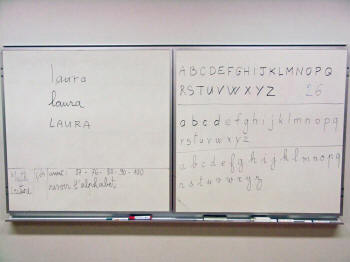 laura
laura
LAURA
revoir l'alphabet
ABCDEFGHIJKLMNOPQ
RSTUVWXYZ 26
abcdefghijklmnopq
rstuvwxyz
abcdefghijklmnopq
rstuvwxyz